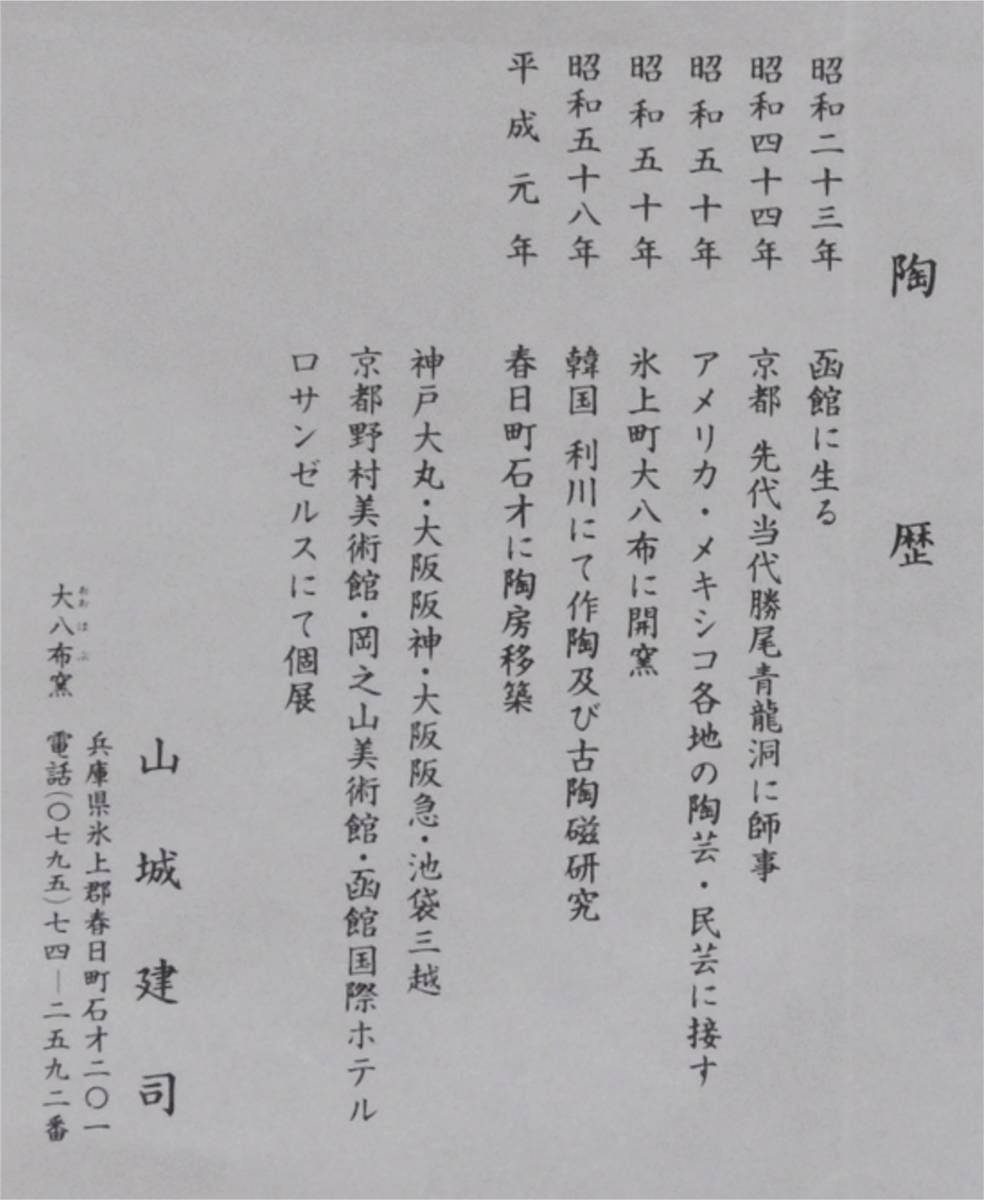 陶歴
昭和二十三年 函館に生る
昭和四十四年 京都 先代当代勝尾青龍洞に師事
昭和五十年 アメリカ・メキシコ各地の陶芸・民芸に接す
昭和五十年 氷上町大八布に開窯
昭和五十八年 韓国 利川にて作陶及び古陶磁研究
平成元年 春日町石才に陶房移築
神戸大丸・大阪阪神・大阪阪急・池袋三越
京都野村美術館・岡之山美術館・函館国際ホテル
ロサンゼルスにて個展
山城建司
兵庫県氷上郡春日町石才二〇一
おおはぶ
大八布窯 電話(〇七九五)七四―二五九二番